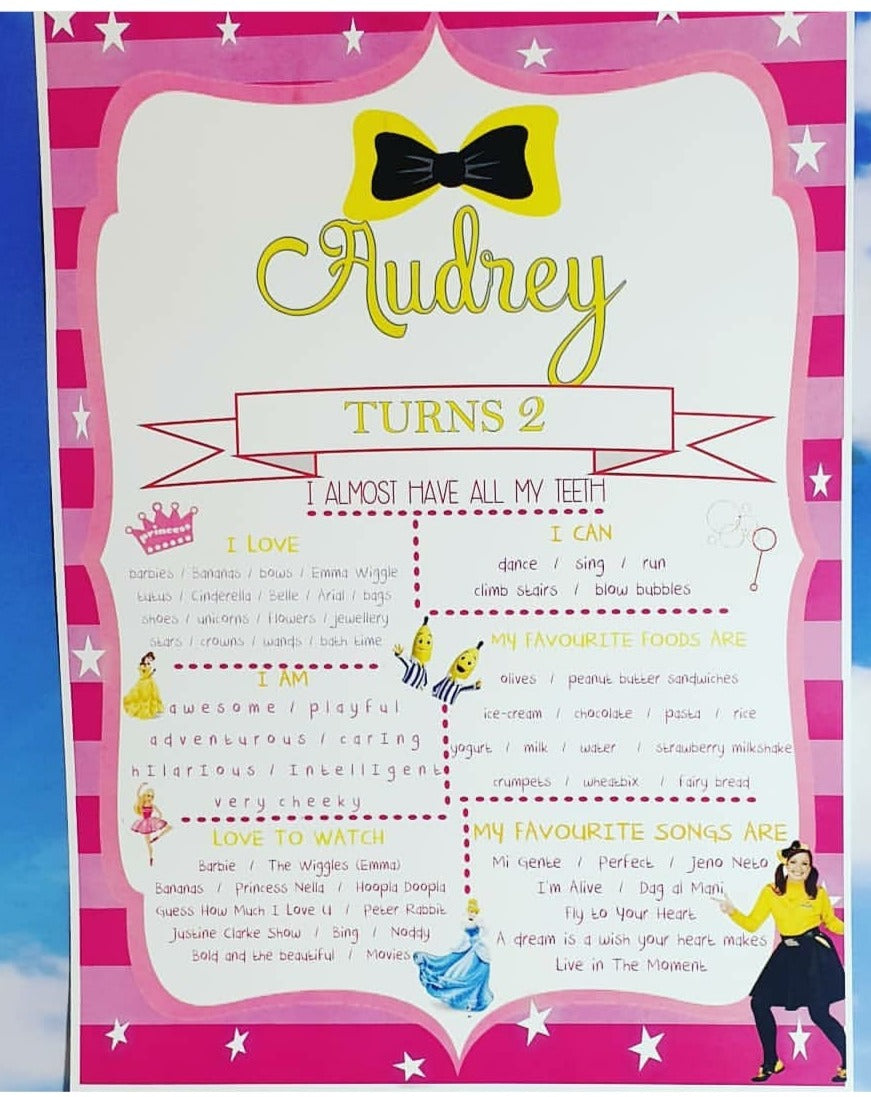 Audrey
TURNS 2
I ALMOST HAVE ALL MY TEETH
princess
I LOVE
barbies / Bananas / bows / Emma Wiggle
tutus / Cinderella / Belle / Arial / bags
shoes / unicorns / flowers / jewellery
stars / crowns / wands / bath time
I CAN
dance / sing / run
climb stairs / blow bubbles
I AM
awesome / playful
adventurous / carIng
hIlarIous / IntellIgent
very cheeky
MY FAVOURITE FOODS ARE
olives / peanut butter sandwiches
ice-cream / chocolate / pasta / rice
yogurt / milk / water / strawberry milkshake
crumpets / wheatbix / fairy bread
LOVE TO WATCH
Barbie / The Wiggles (Emma)
Bananas / Princess Nella / Hoopla Doopla
Guess How Much I Love U / Peter Rabbit
Justine Clarke Show / Bing / Noddy
Bold and the beautiful / Movies
MY FAVOURITE SONGS ARE
Mi Gente / Perfect / Jeno Neto
I'm Alive / Dag al Mani
Fly to Your Heart
A dream is a wish your heart makes
Live in The Moment